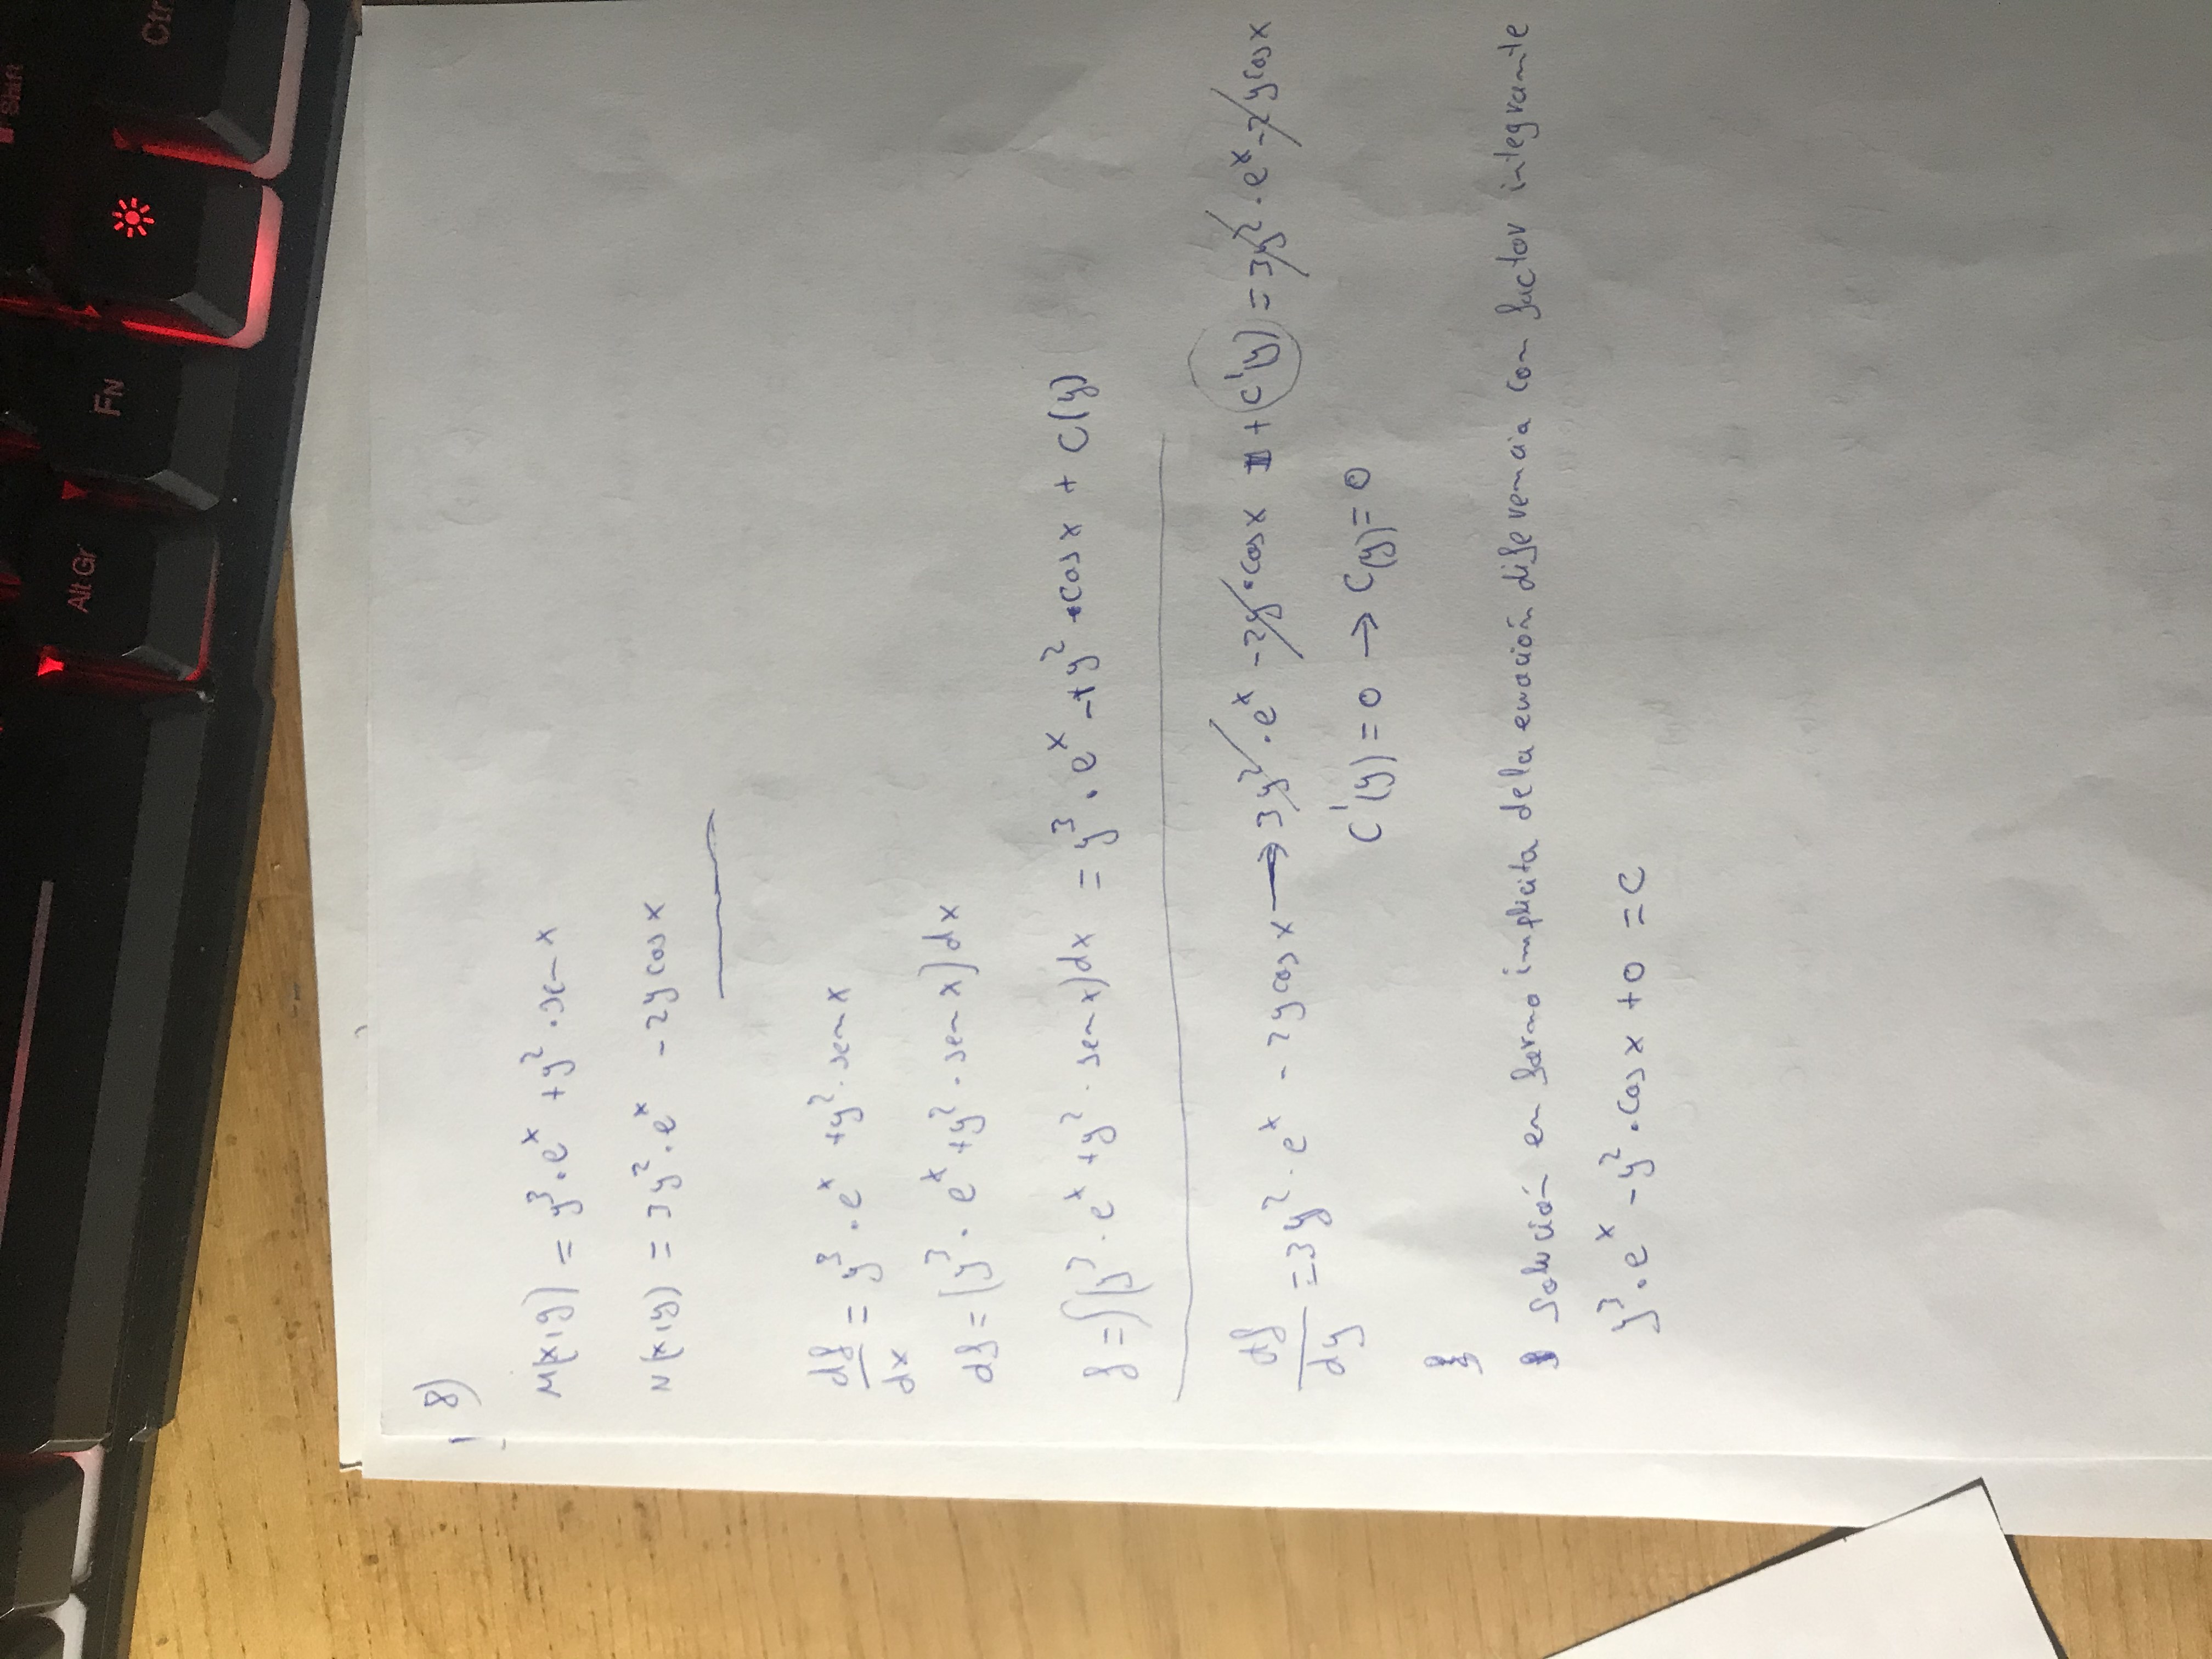 Shift
Alt Gr
FN
Ctr
8)
M(x,y) = y³·eˣ + y²·sen x
N(x,y) = 3y²·eˣ - 2y cos x
df/dx = y³·eˣ + y²·sen x
df = (y³·eˣ + y²·sen x) dx
f = ∫(y³·eˣ + y²·sen x) dx = y³·eˣ - y²·cos x + C(y)
df/dy = 3y²·eˣ - 2y cos x → 3y²·eˣ - 2y·cos x + C'(y) = 3y²·eˣ - 2y cos x
C'(y) = 0 → C(y) = 0
solución en forma implicita de la ecuación diferencia con factor integrante
y³·eˣ - y²·cos x + 0 = C